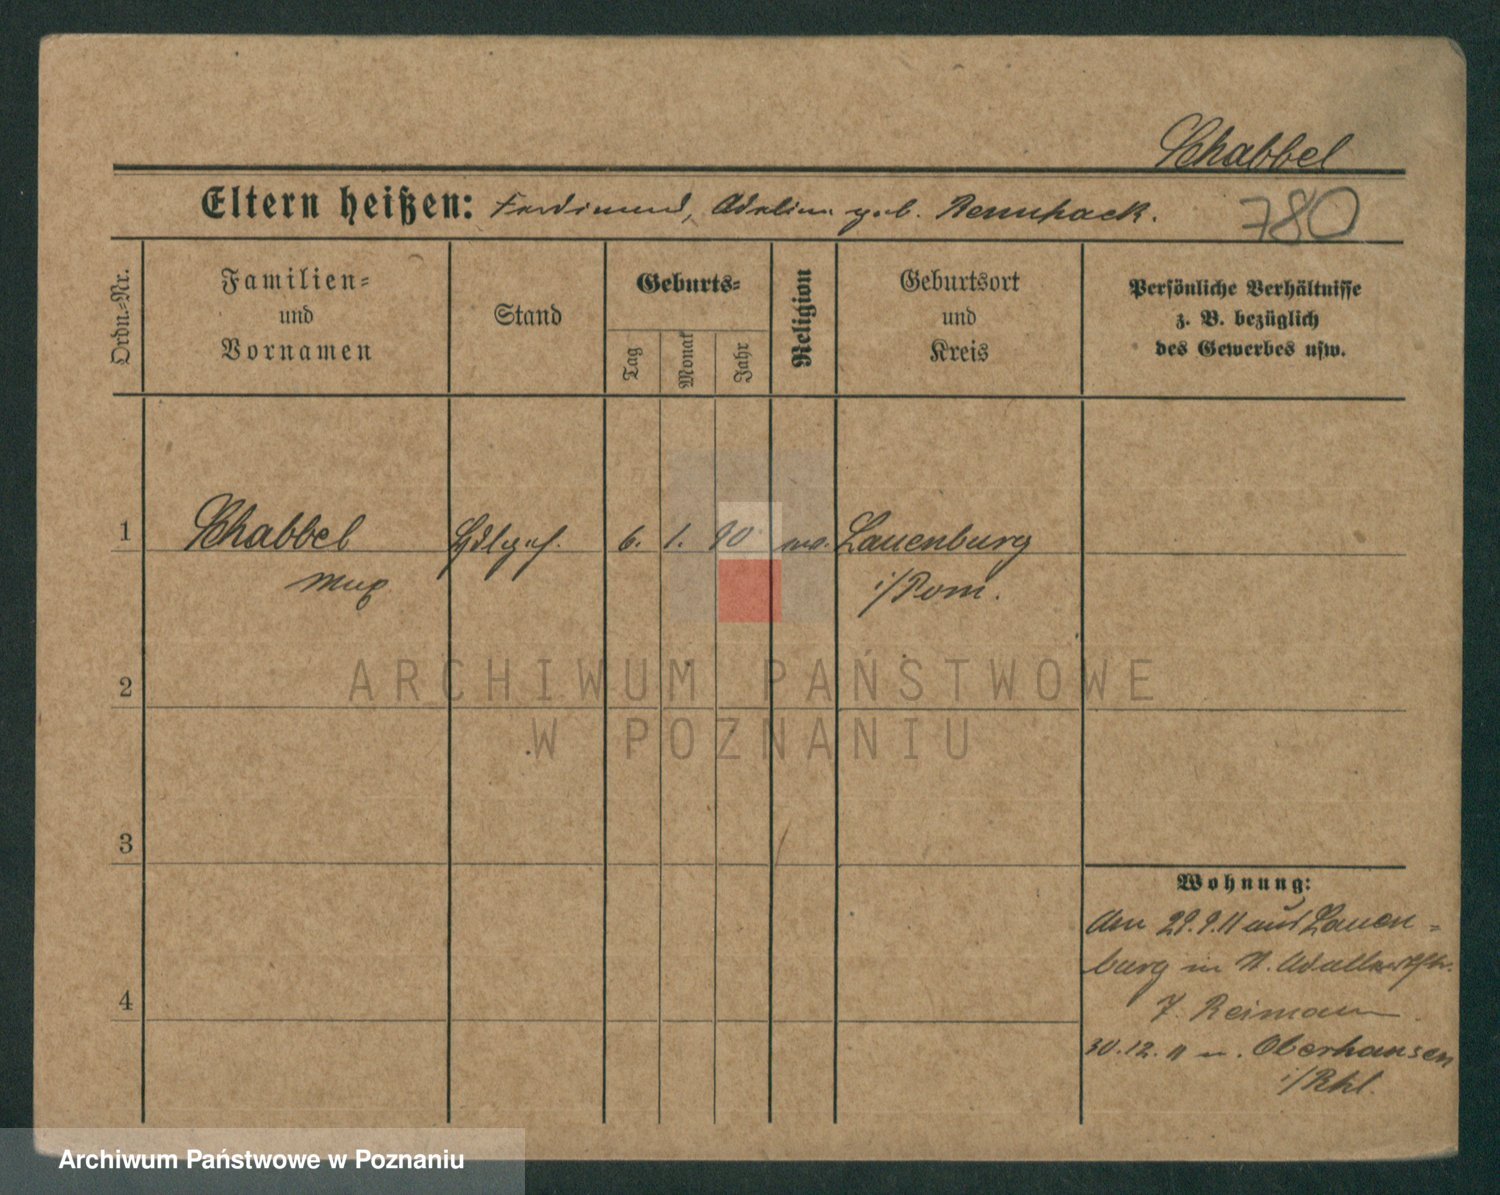 Schabbel
Eltern heißen: Ferdinand, Adeline geb. Rennhack.
780
Ordn.-Nr.
Familien-
und
Vornamen
Stand
Geburts-
Tag
Monat
Jahr
Religion
Geburtsort
und
Kreis
Persönliche Verhältnisse
z. B. bezüglich
des Gewerbes usw.
1
Schabbel
Max
Hdlgeh.
6. 1. 90
Lauenburg
i/Pom.
2
ARCHIWUM PAŃSTWOWE
W POZNANIU
3
Wohnung:
Am 29.9.11 aus Lauen-
burg in
7. Reimann
4
30.12.11 n. Oberhausen
i/Rhl.
Archiwum Państwowe w Poznaniu